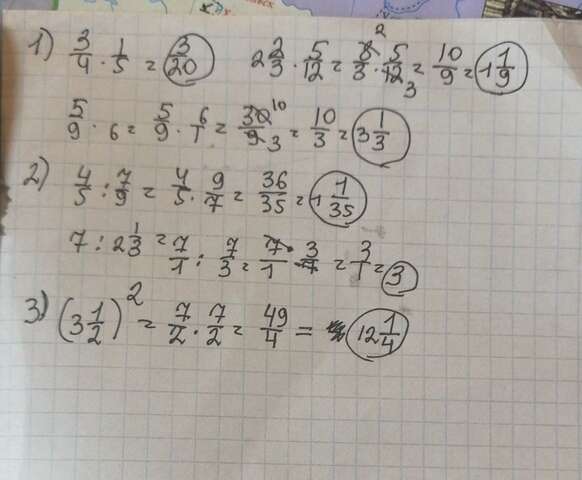 1) 3/4 · 1/5 = 3/20 2 2/3 · 5/12 = 8/3 · 5/12 2 3 = 10/9 = 1 1/9
5/9 · 6 = 5/9 · 6/1 = 30/9 10 3 = 10/3 = 3 1/3
2) 4/5 : 7/9 = 4/5 · 9/7 = 36/35 = 1 1/35
7 : 2 1/3 = 7/1 : 7/3 = 7/1 · 3/7 = 3/1 = 3
3) (3 1/2)² = 7/2 · 7/2 = 49/4 = 12 1/4